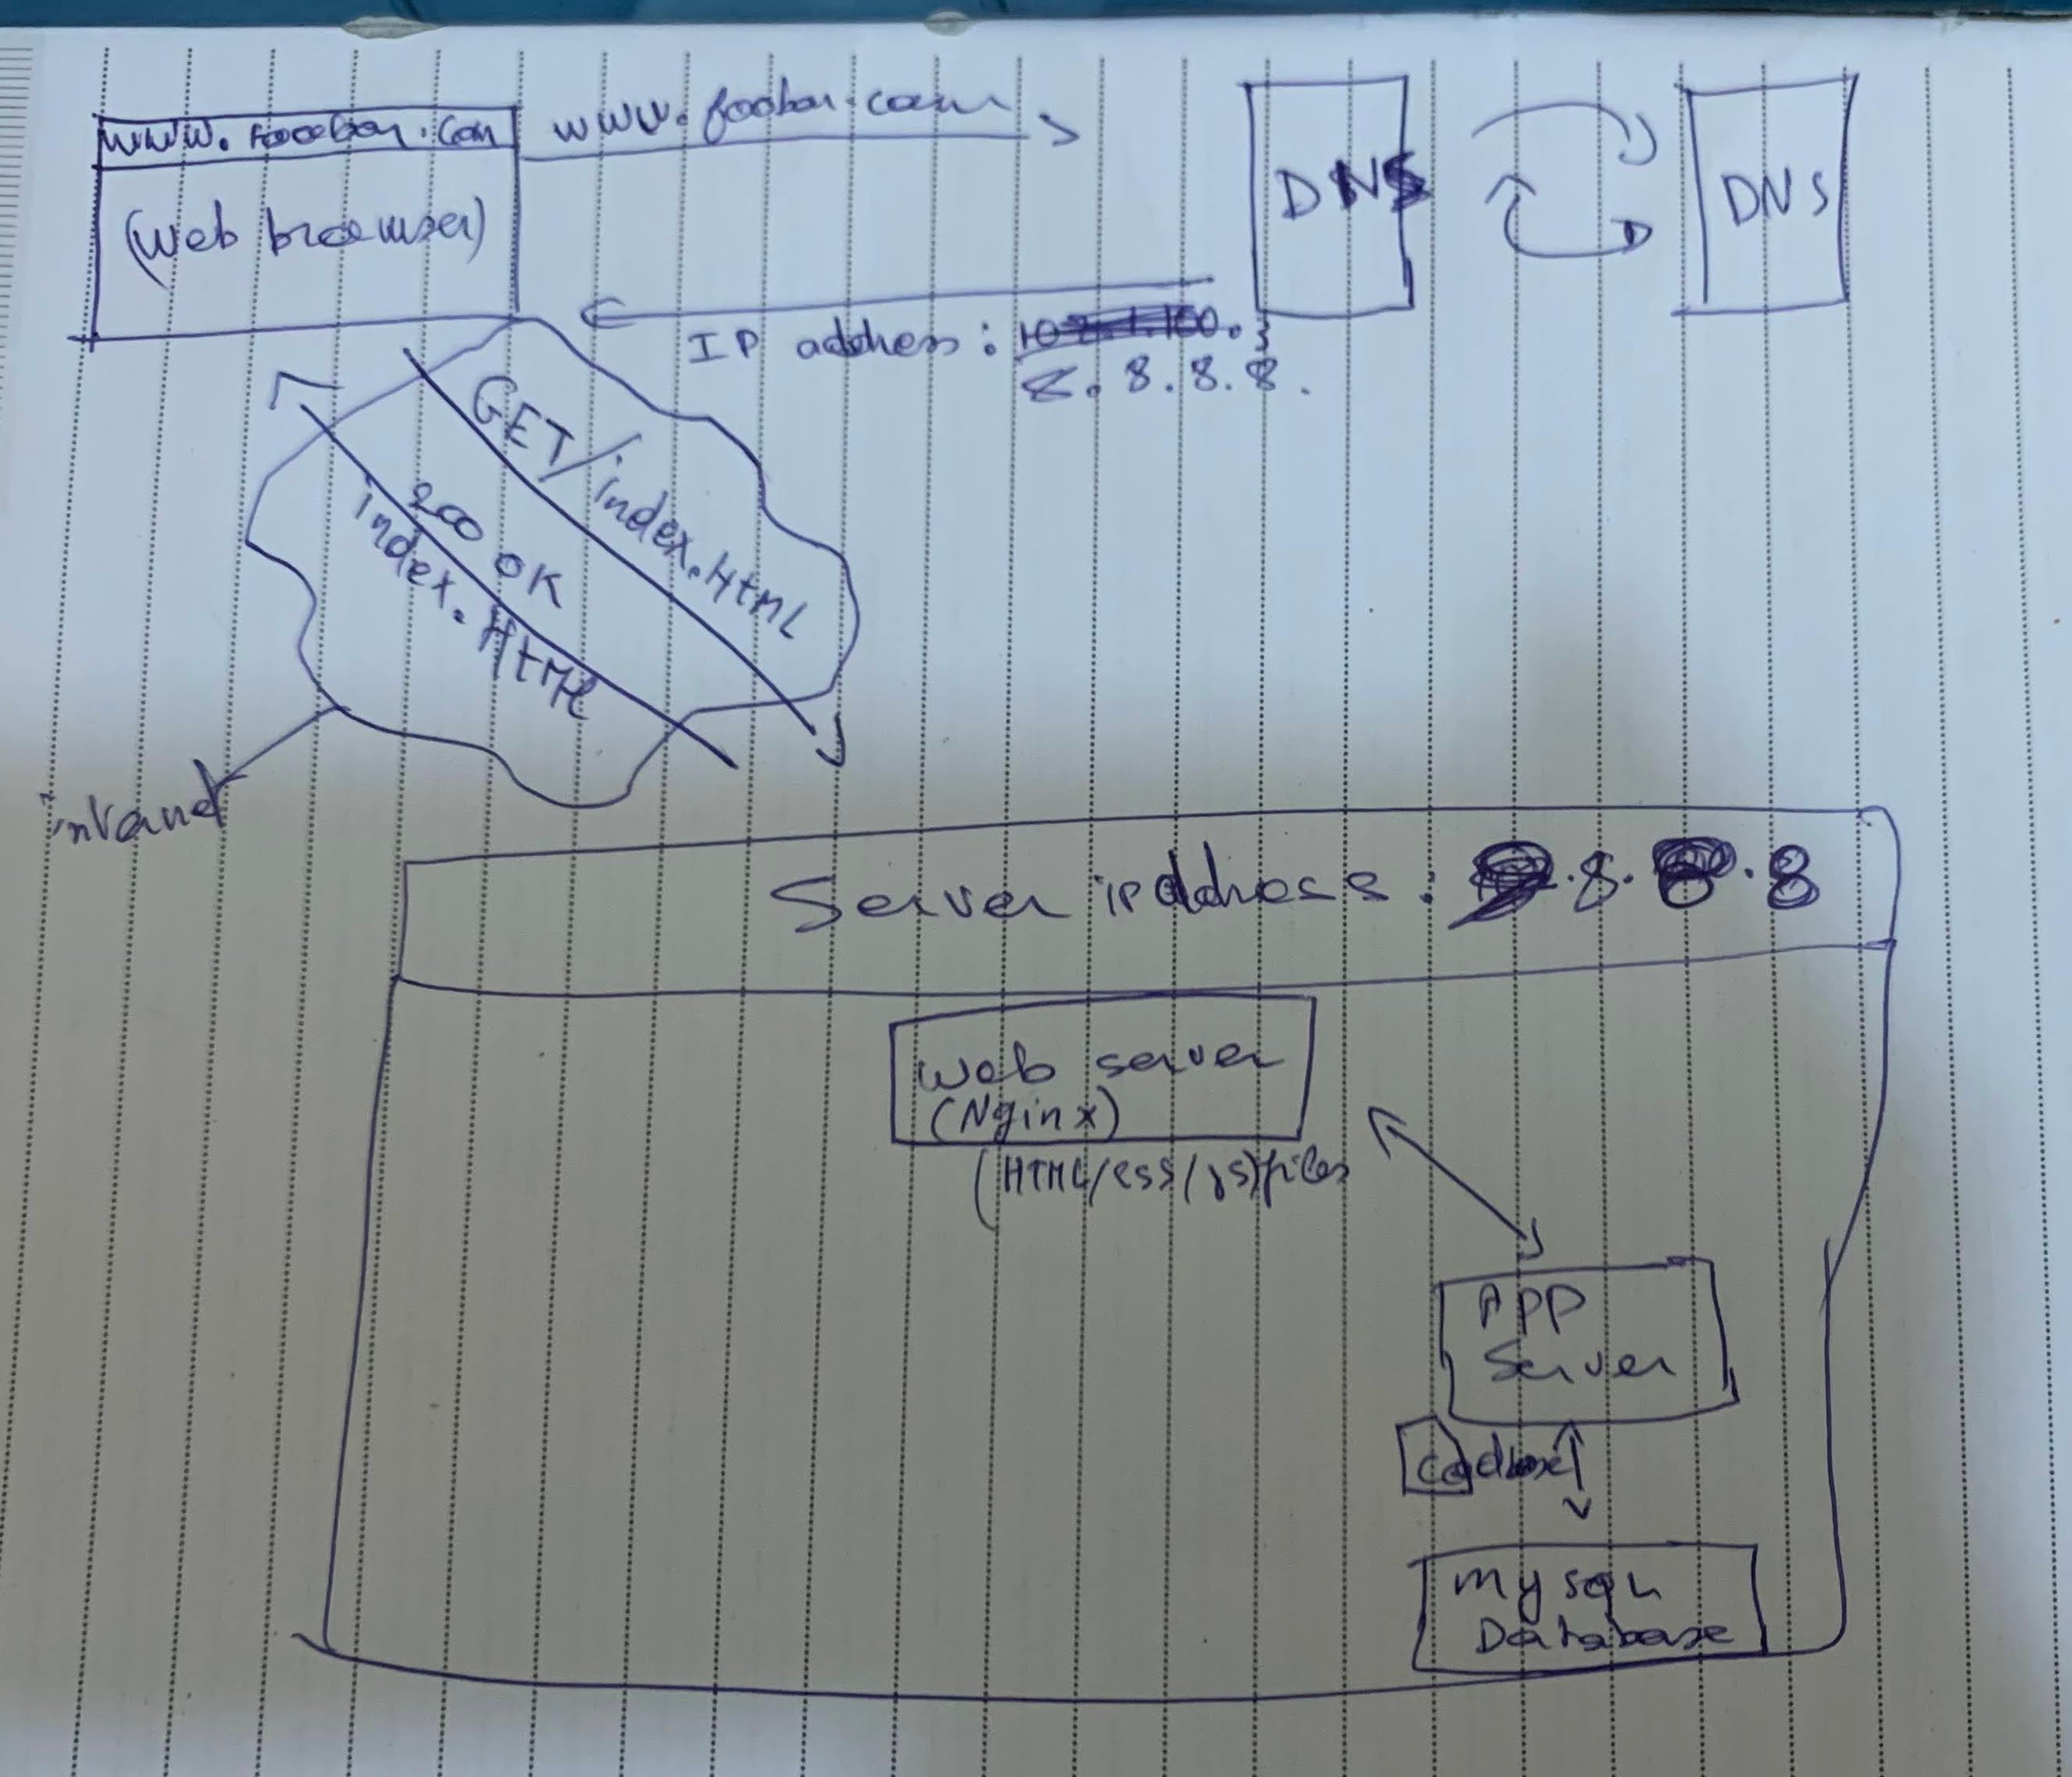 www.foobar.com
(web browser)
www.foobar.com
DNS
DNS
IP address:
8.8.8.8.
GET/index.HtML
200 OK
index.HtML
Server ip address: .8.8.8
web server
(Nginx)
(HTML/CSS/JS)files
APP
Server
mysql
Database